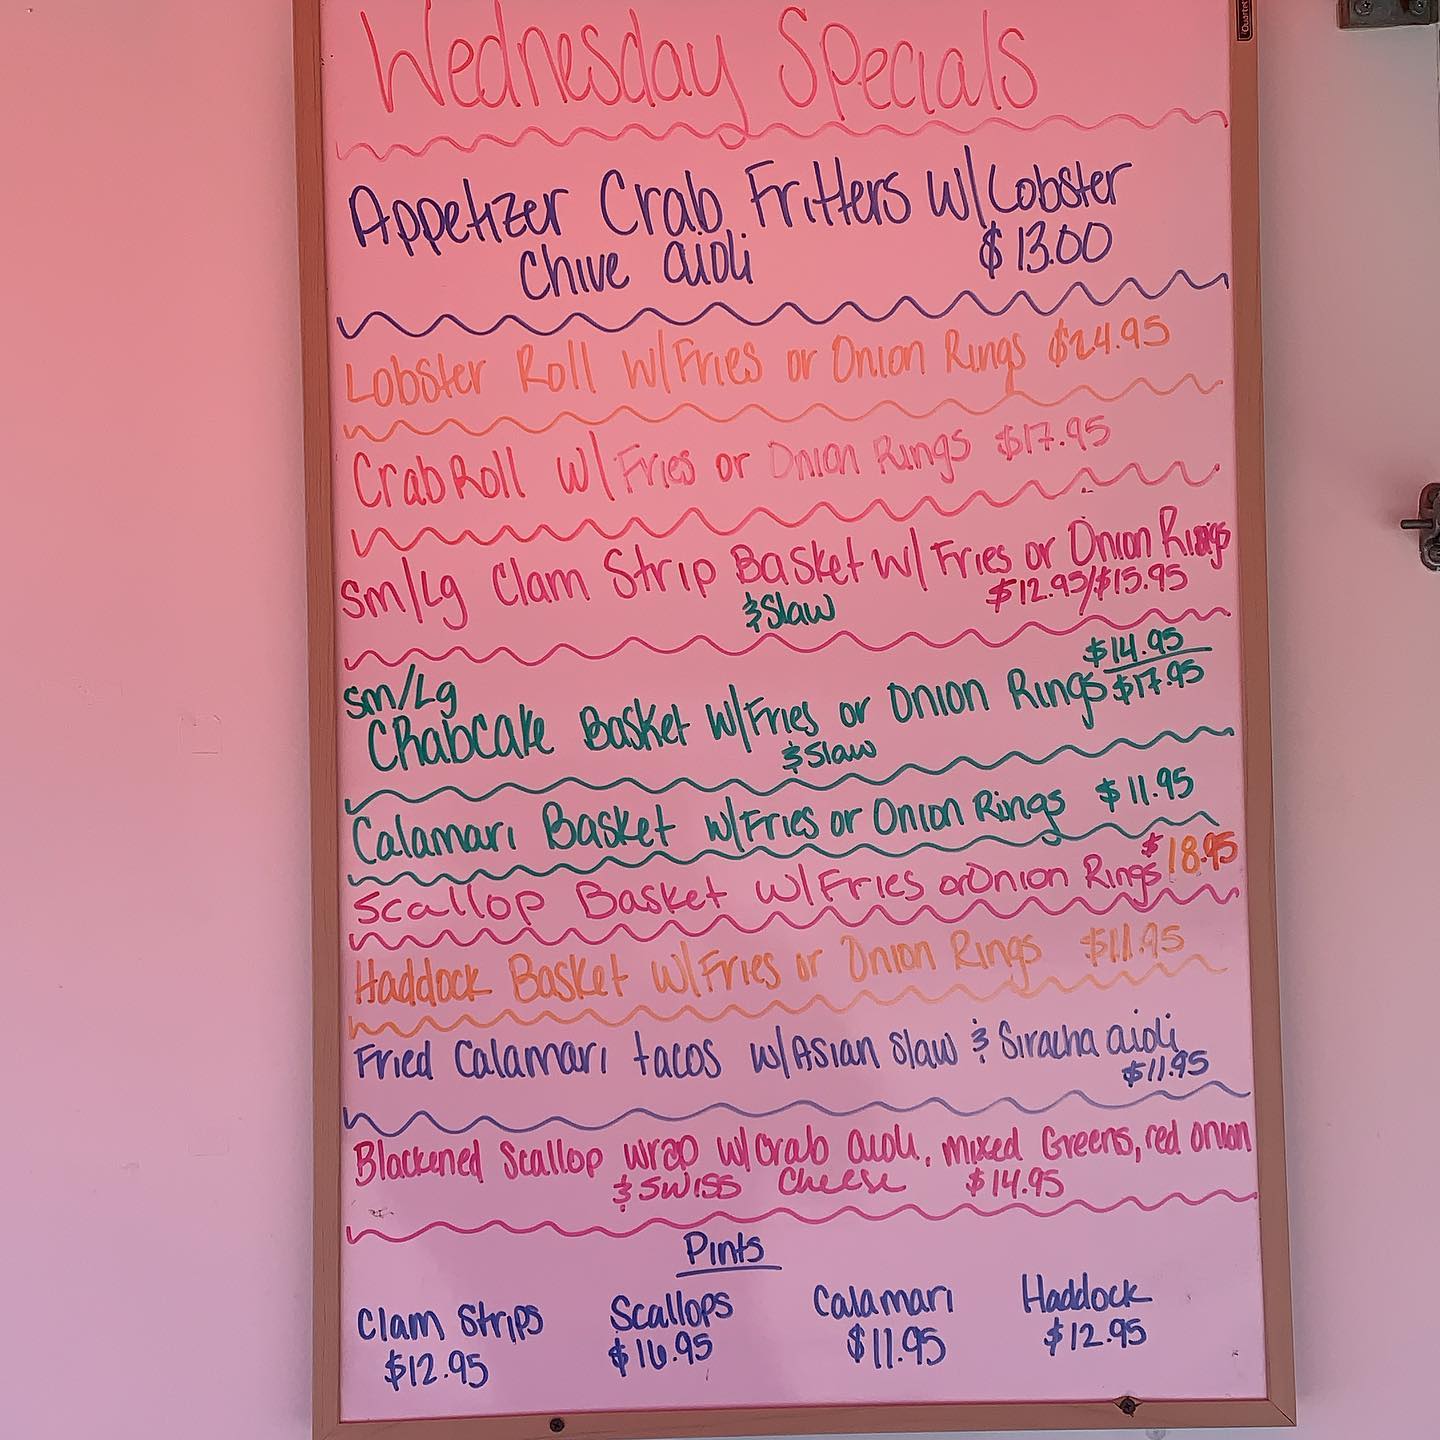 Quartet
Wednesday Specials
Appetizer Crab Fritters w/Lobster
Chive aioli $13.00
Lobster Roll w/Fries or Onion Rings $24.95
Crab Roll w/Fries or Onion Rings $17.95
Sm/Lg Clam Strip Basket w/Fries or Onion Rings
& Slaw $12.95/$15.95
Sm/Lg $14.95
Crabcake Basket w/Fries or Onion Rings $17.95
& Slaw
Calamari Basket w/Fries or Onion Rings $11.95
Scallop Basket w/Fries or Onion Rings $18.95
Haddock Basket w/Fries or Onion Rings $11.95
Fried Calamari tacos w/Asian Slaw & Siracha aioli
$11.95
Blackened Scallop wrap w/crab aioli, mixed Greens, red onion
& Swiss Cheese $14.95
Pints
Clam Strips Scallops Calamari Haddock
$12.95 $16.95 $11.95 $12.95